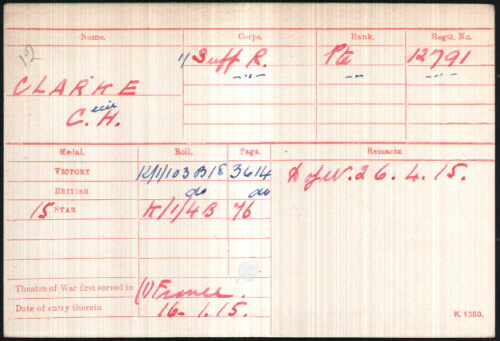 Name. Corps. Rank. Regtl. No.
1) Suff R. Pte 12791
-"- -"- -"-
CLARKE
C.ecil H.
Medal. Roll. Page. Remarks.
VICTORY K/1/103 B18 3614 D of W. 26.4.15.
BRITISH do do
15 STAR K/1/4B 76
Theatre of War first served in (1) France.
Date of entry therein 16.1.15.
K. 1380.